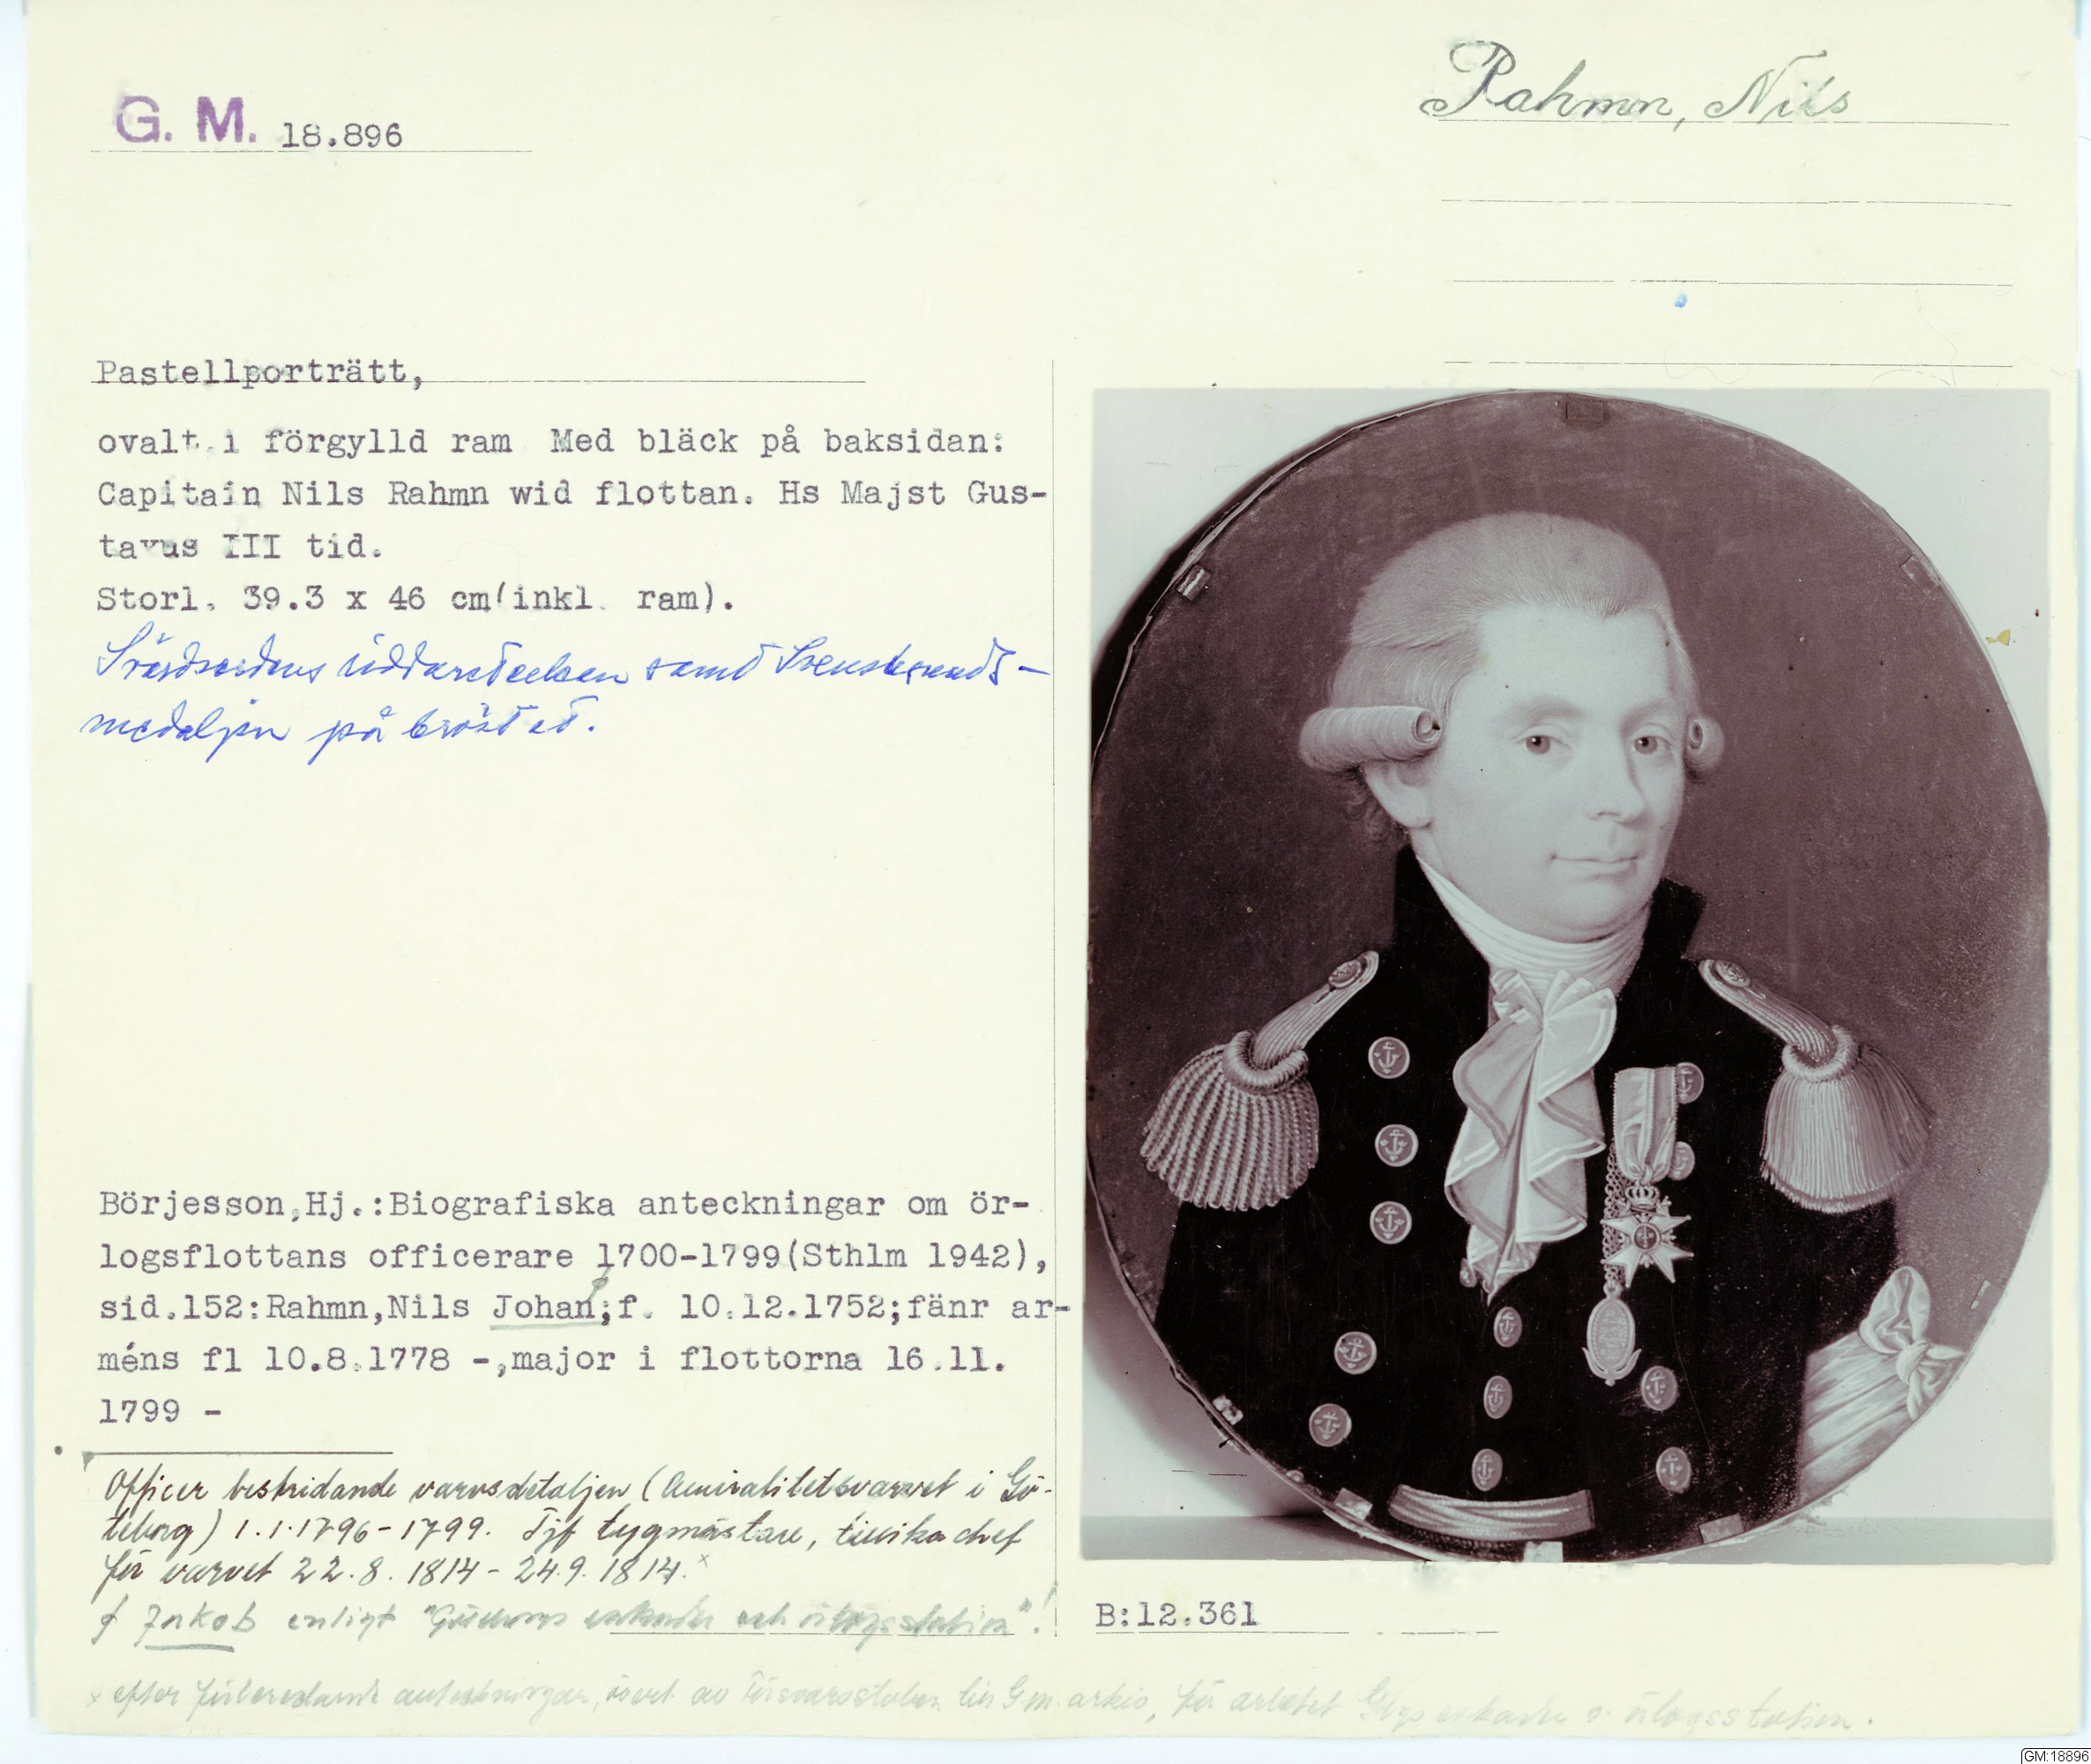 G. M. 18.896
Rahmn, Nils
Pastellporträtt,
ovalt i förgylld ram Med bläck på baksidan:
Capitain Nils Rahmn wid flottan. Hs Majst Gus-
tavus III tid.
Storl. 39.3 x 46 cm(inkl. ram).
Svärdsordens riddartecken samt Svensksunds-
medaljen på bröstet.
Börjesson,Hj.:Biografiska anteckningar om ör-
logsflottans officerare 1700-1799(Sthlm 1942),
sid.152:Rahmn,Nils Johan;f. 10.12.1752;fänr ar-
méns fl 10.8.1778 -,major i flottorna 16.11.
1799 -
Officer beskridande varvsdetaljen (Amiralitetsvarvet i Gö-
teborg) 1.1.1796-1799. Tjf tygmästare, tillika chef
för varvet 22.8.1814-24.9.1814.x
Jakob enligt "Göteborgs eskader och örlogsstation"!
x efter förberedande anteckningar, överl. av Försvarsstaben till G.m. arkiv, för arbetet Gbgs eskader o. örlogsstation.
B:12.361
GM:18896